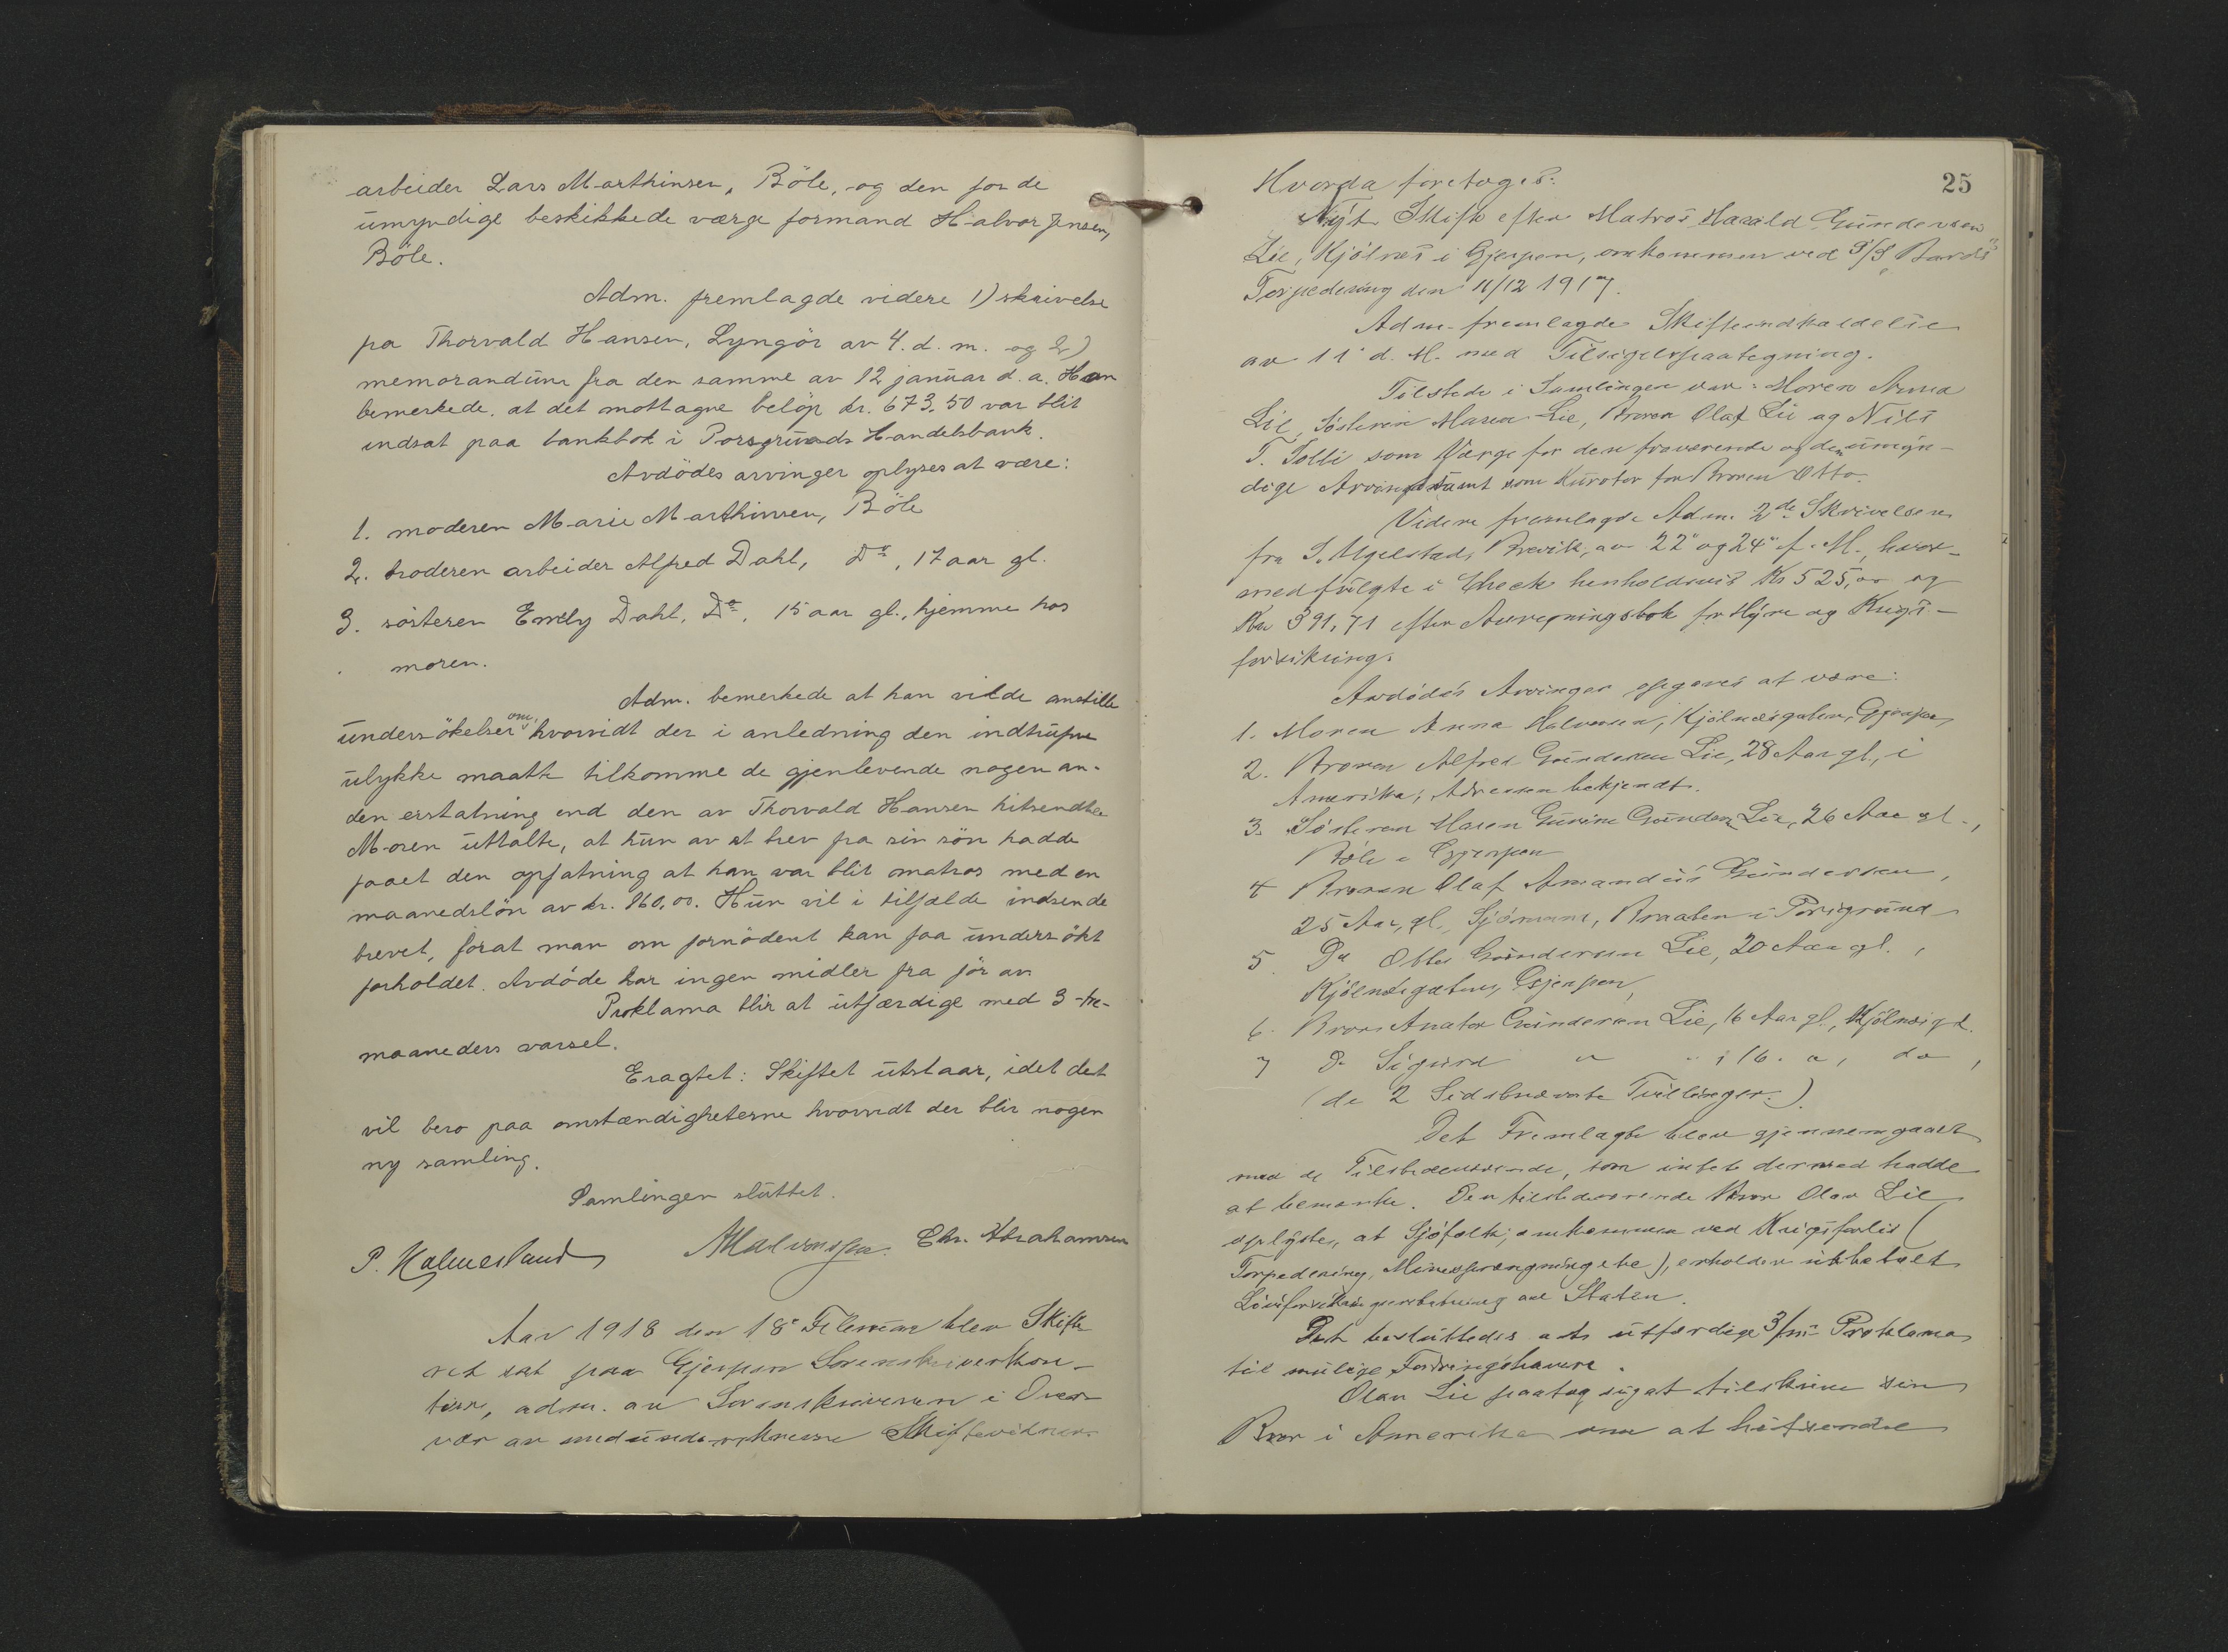 arbeider Lars Marthinsen, Böle, og den for de
umyndige beskikkede værge formand Halvor Jensen,
Böle.
Adm. fremlagde videre 1) skrivelse
fra Thorvald Hansen, Lyngör av 4. d. m. og 2)
memorandum fra den samme av 12 januar d. a. Han
bemerkede, at det mottagne belöp kr. 673,50 var blit
indsat paa bankbok i Porsgrunds Handelsbank.
Avdödes arvinger oplyses at være:
1. moderen Marie Marthinsen, Böle
2. broderen arbeider Alfred Dahl, Do, 17 aar gl.
3. sösteren Emely Dahl, Do, 15 aar gl., hjemme hos
moren.
Adm. bemerkede at han vilde anstille
undersökelser om, hvorvidt der i anledning den indtrufne
ulykke maatte tilkomme de gjenlevende nogen an-
den erstatning end den av Thorvald Hansen hitsendte
Moren uttalte, at hun av et brev fra sin sön hadde
faaet den opfatning at han var blit matros med en
maanedslön av kr. 160,00. Hun vil i tilfælde indsende
brevet, forat man om fornödent kan faa undersökt
forholdet. Avdöde har ingen midler fra för av
Proklama blir at utfærdige med 3-tre-
maaneders varsel.
Eragtet: Skiftet utstaar, idet det
vil bero paa omstændigheterne hvorvidt der blir nogen
ny samling.
Samlingen sluttet.
P. Holmesland AHalvorsen Chr. Abrahamsen
Aar 1918 den 18de Februar blev Skifte
ret sat paa Gjerpen Sorenskriverkon-
tor, adm. av Sorenskriveren i Over
vær av medundertegnede Skiftevidner.
25
Hvorda foretoges:
Nyt Skifte efter Matros Harald Gundersen
Lie, Kjölnes i Gjerpen, omkommen ved S/S "Bards"
Torpedering den 11/12 1917.
Adm. fremlagde Skifteindkaldelse
av 11' d. M. med Tilsigelsespaategning.
Tilstede i Samlingen var: Moren Anna
Lie, Sösteren Maren Lie, Broren Olaf Lie og Nils
T. Tolli som Værge for den fraværende og de umyn-
dige Arvinger samt som Kurator for Broren Otto.
Videre fremlagde Adm. 2de Skrivelser
fra S. Ugelstad, Brevik, av 22' og 24' f. M., hvor-
medfulgte i Check henholdsvis Kr 525,00 og
Kr 391,71 efter Avregningsbok for Hyre og Krigs-
forsikring.
Avdödes Arvinger opgaves at være:
1. Moren Anna Halvorsen, Kjölnesgaten, Gjerpen
2. Broren Alfred Gundersen Lie, 28 Aar gl., i
Amerika, Adressen bekjendt.
3. Sösteren Maren Gurine Gunders. Lie, 26 Aar gl.,
Böle i Gjerpen
4 Broren Olaf Amandus Gundersen,
25 Aar gl., Sjömann, Braaten i Porsgrund
5. Do Otto Gundersen Lie, 20 Aar gl.,
Kjölnesgaten, Gjerpen,
6. Bror Anator Gundersen Lie, 16 Aar gl., Kjölnesgt.
7 Do Sigurd " " , 16. a, do,
(de 2 Sidstnævnte Tvillinger.)
Det Fremlagte blev gjennemgaaet
med de Tilstedeværende, som intet dermed hadde
at bemærke. Den tilstedeværende Bror Olav Lie
oplyste, at Sjöfolk, omkommen ved Krigsforlis (
Torpedering, Minesprængning etc), erholder utbetalt
av Staten.
Det besluttedes at utfærdige 3/m Proklama
til mulige Fordringshavere.
Olav Lie paatog sig at tilskrive sin
Bror i Amerika om at hitsende